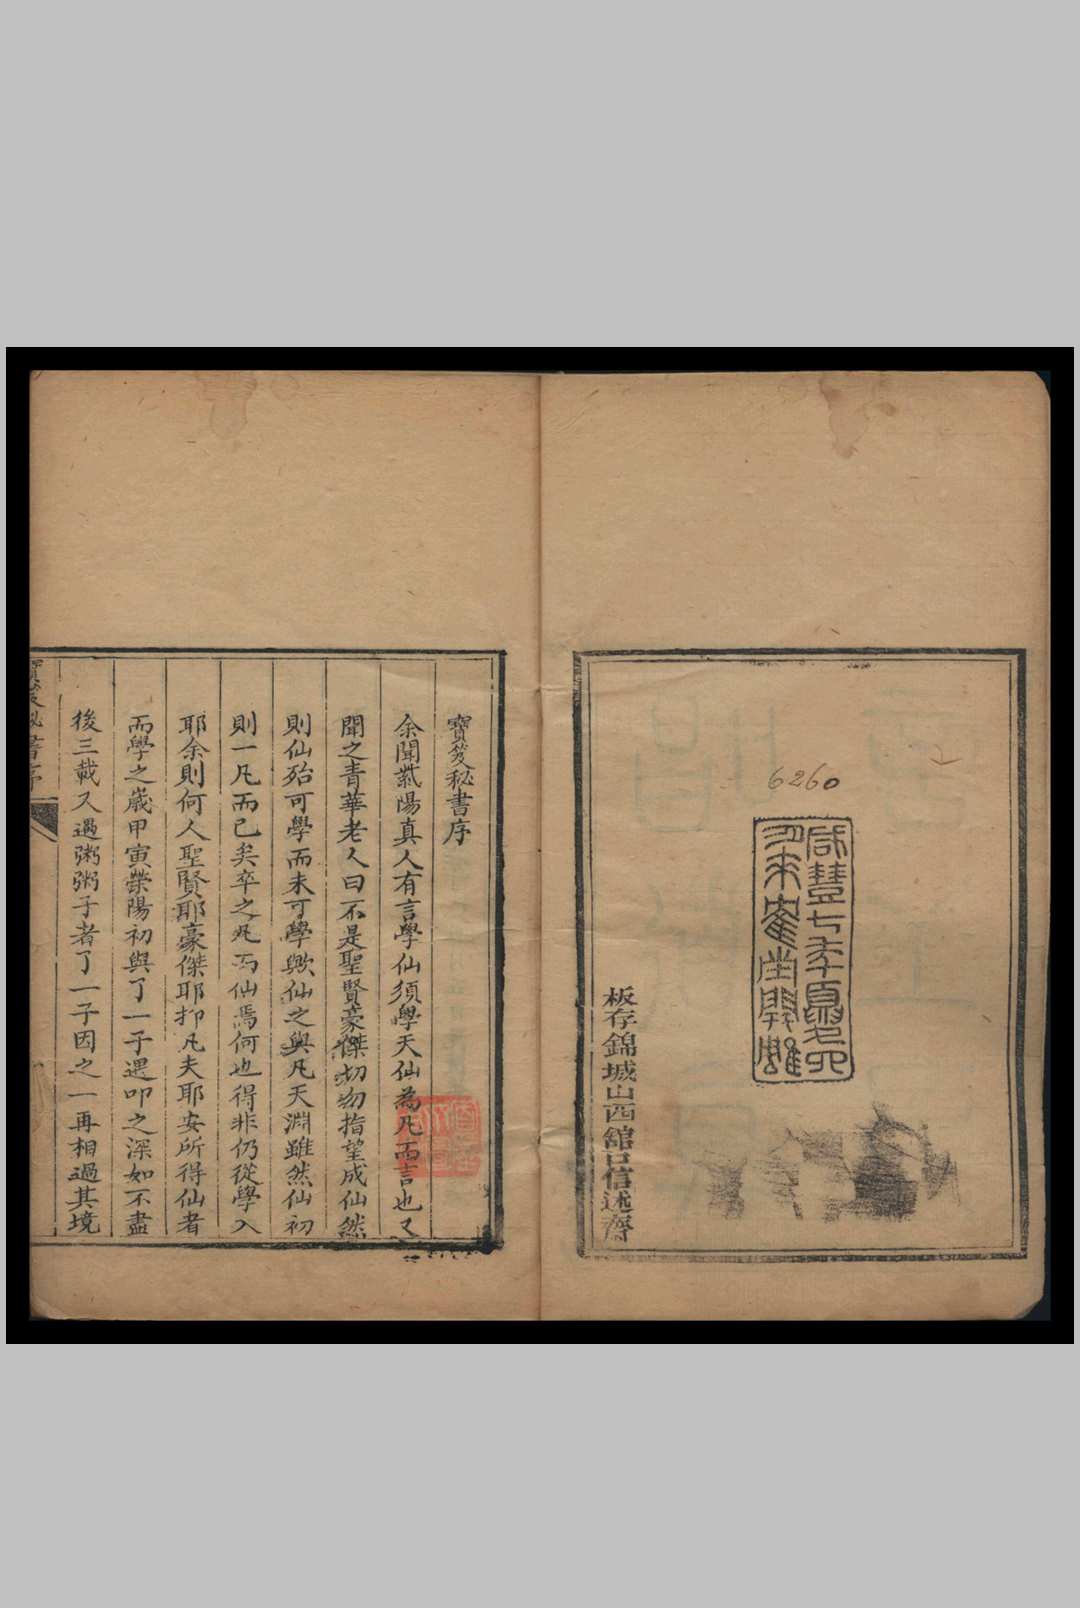 6260
咸豐七年夏四
月來崔山開雕
板存錦城山西館口信述齋
寶笈秘書序
余聞紫陽真人有言學仙須學天仙為凡而言也又
聞之青華老人曰不是聖賢豪傑切勿指望成仙然
則仙殆可學而未可學歟仙之與凡天淵雖然仙初
則一凡而已矣卒之凡而仙焉何也得非仍從學入
耶余則何人聖賢耶豪傑耶抑凡夫耶安所得仙者
而學之歲甲寅榮陽初與了一子遇叩之深如不盡
後三載又遇粥粥子者了一子因之一再相過其境
寶笈秘書序